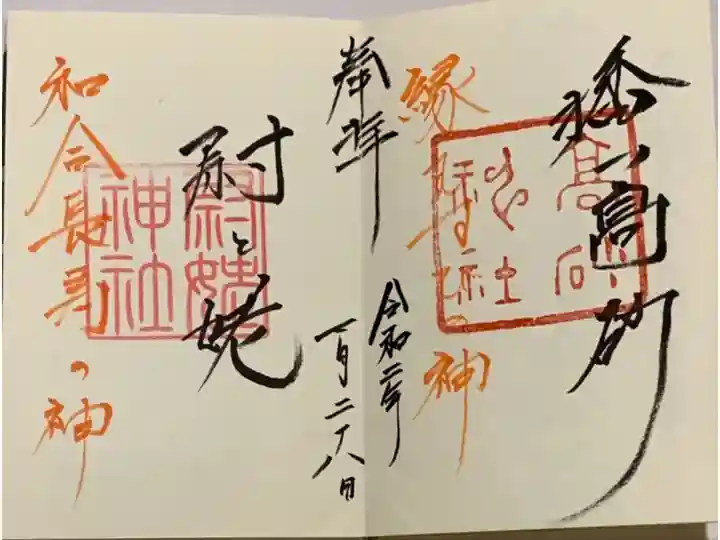 高砂
縁結びの神
奉拝
令和二年
一月二十八日
尉と姥
尉姥
神社
和合長寿の神